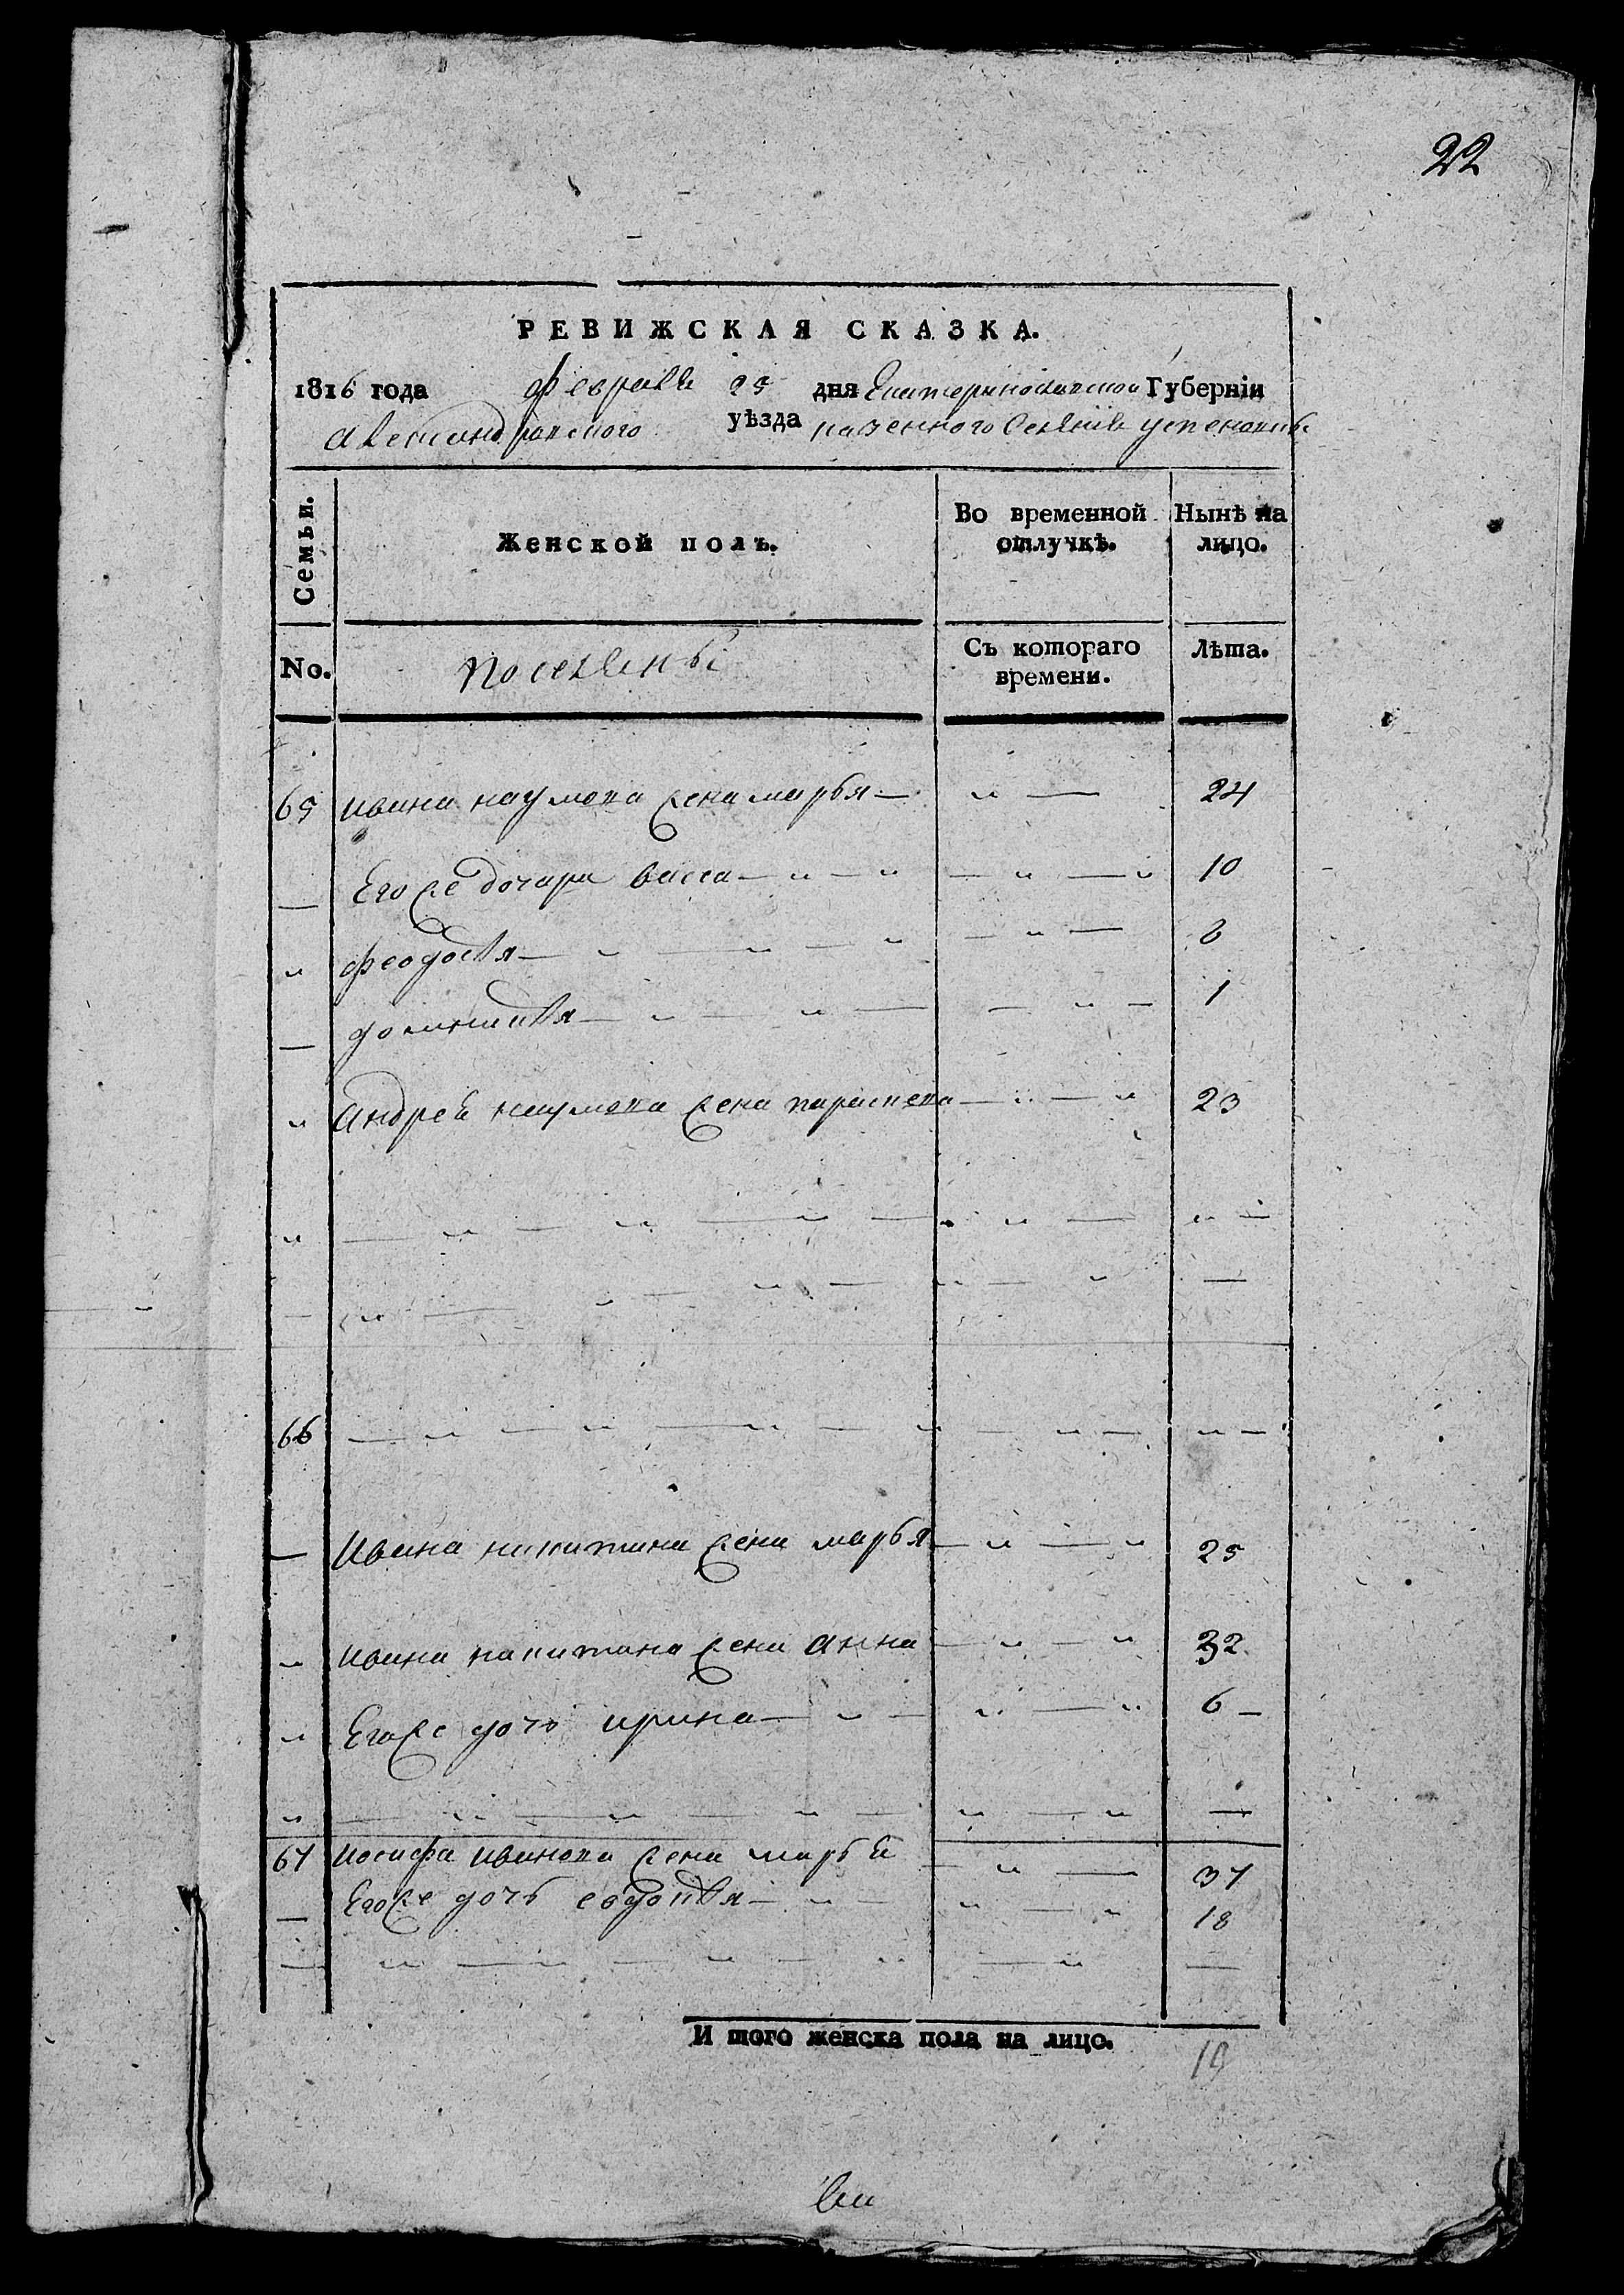 22
РЕВИЖСКАЯ СКАЗКА.
1816 года февраля 25 дня Екатеринославской Губерніи
Александровского уѣзда казенного селенія успеновки
Семьи.
Женской полъ.
Во временной отлучкѣ.
Нынѣ на лицо.
No.
поселяны
Съ котораго времени.
Лѣта.
65 Ивана наумова жена марья — 24
Его же дочери васса — 10
феодосия — 8
домникия — 1
Андрея наумова жена параскева — 23
66
Ивана никитина жена марья — 25
Ивана никитина жена анна — 32
Его же дочь ирина — 6
67 Иосифа иванова жена марья — 37
Его же дочь евдокия — 18
И того женска пола на лицо. 10